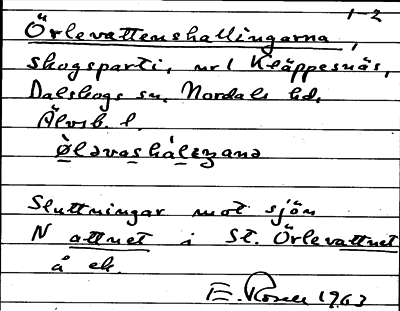 1-2
Örlevattenshallingarna,
skogsparti, nr 1 Kläppesnäs,
Dalskogs sn, Nordals hd,
Älvsb. l.
Sluttningar mot sjön
N attnet i St. Örlevattnet
å ek.
1963